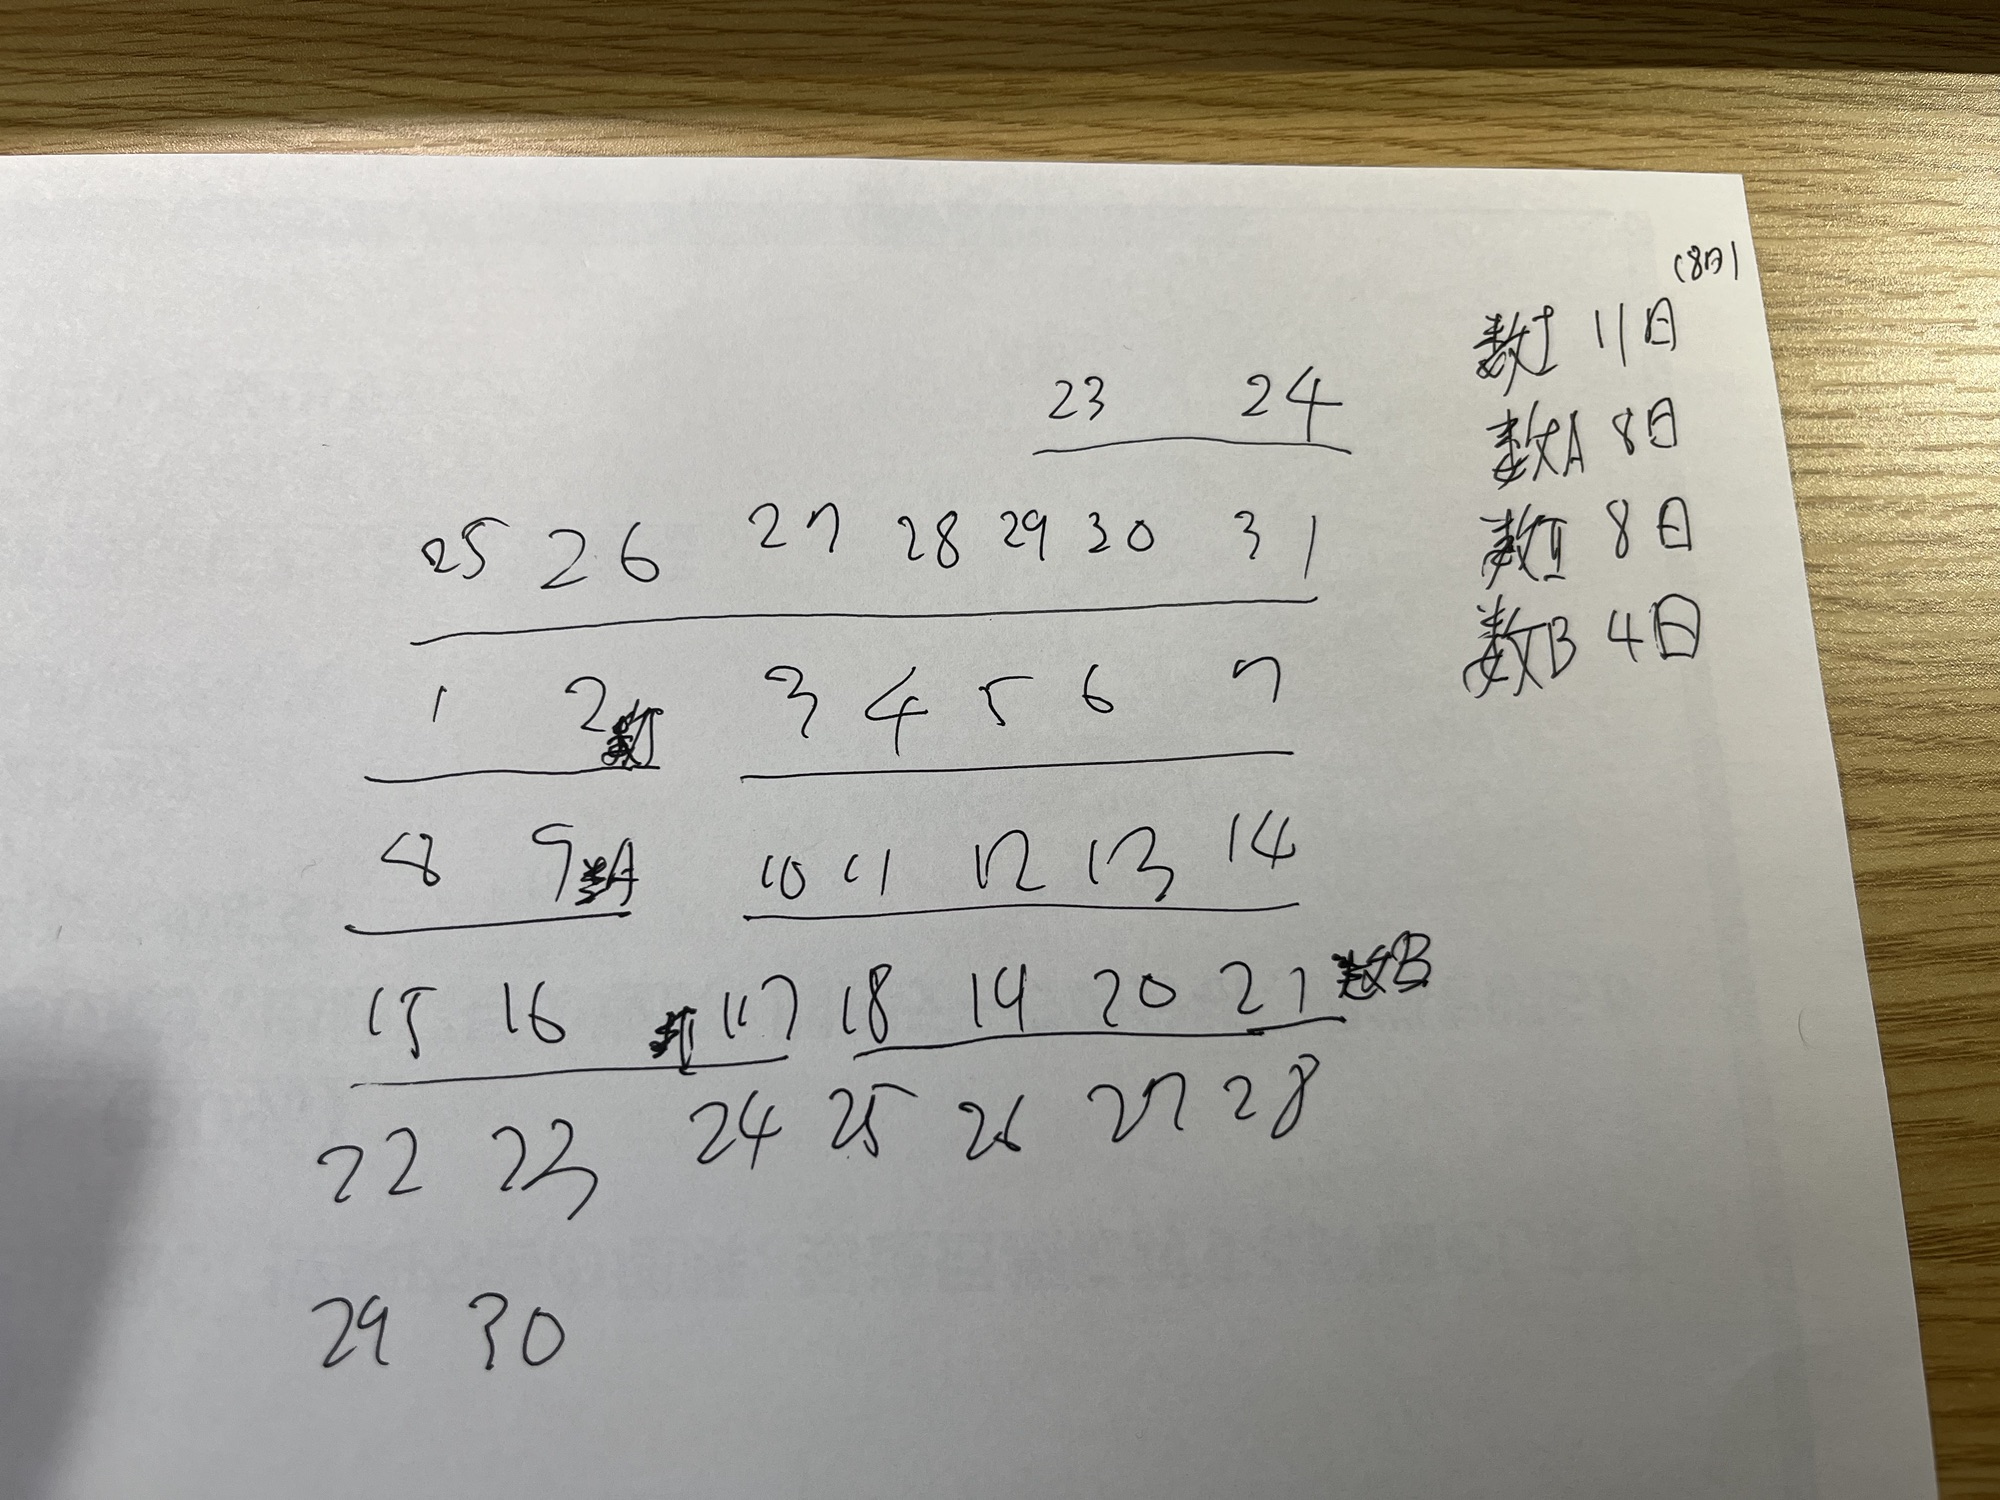 (8日)
数I 11日
数A 8日
数II 8日
数B 4日
23 24
25 26 27 28 29 30 31
1 2 数I 3 4 5 6 7
8 9 数A 10 11 12 13 14
15 16 数II 17 18 19 20 21 数B
22 23 24 25 26 27 28
29 30